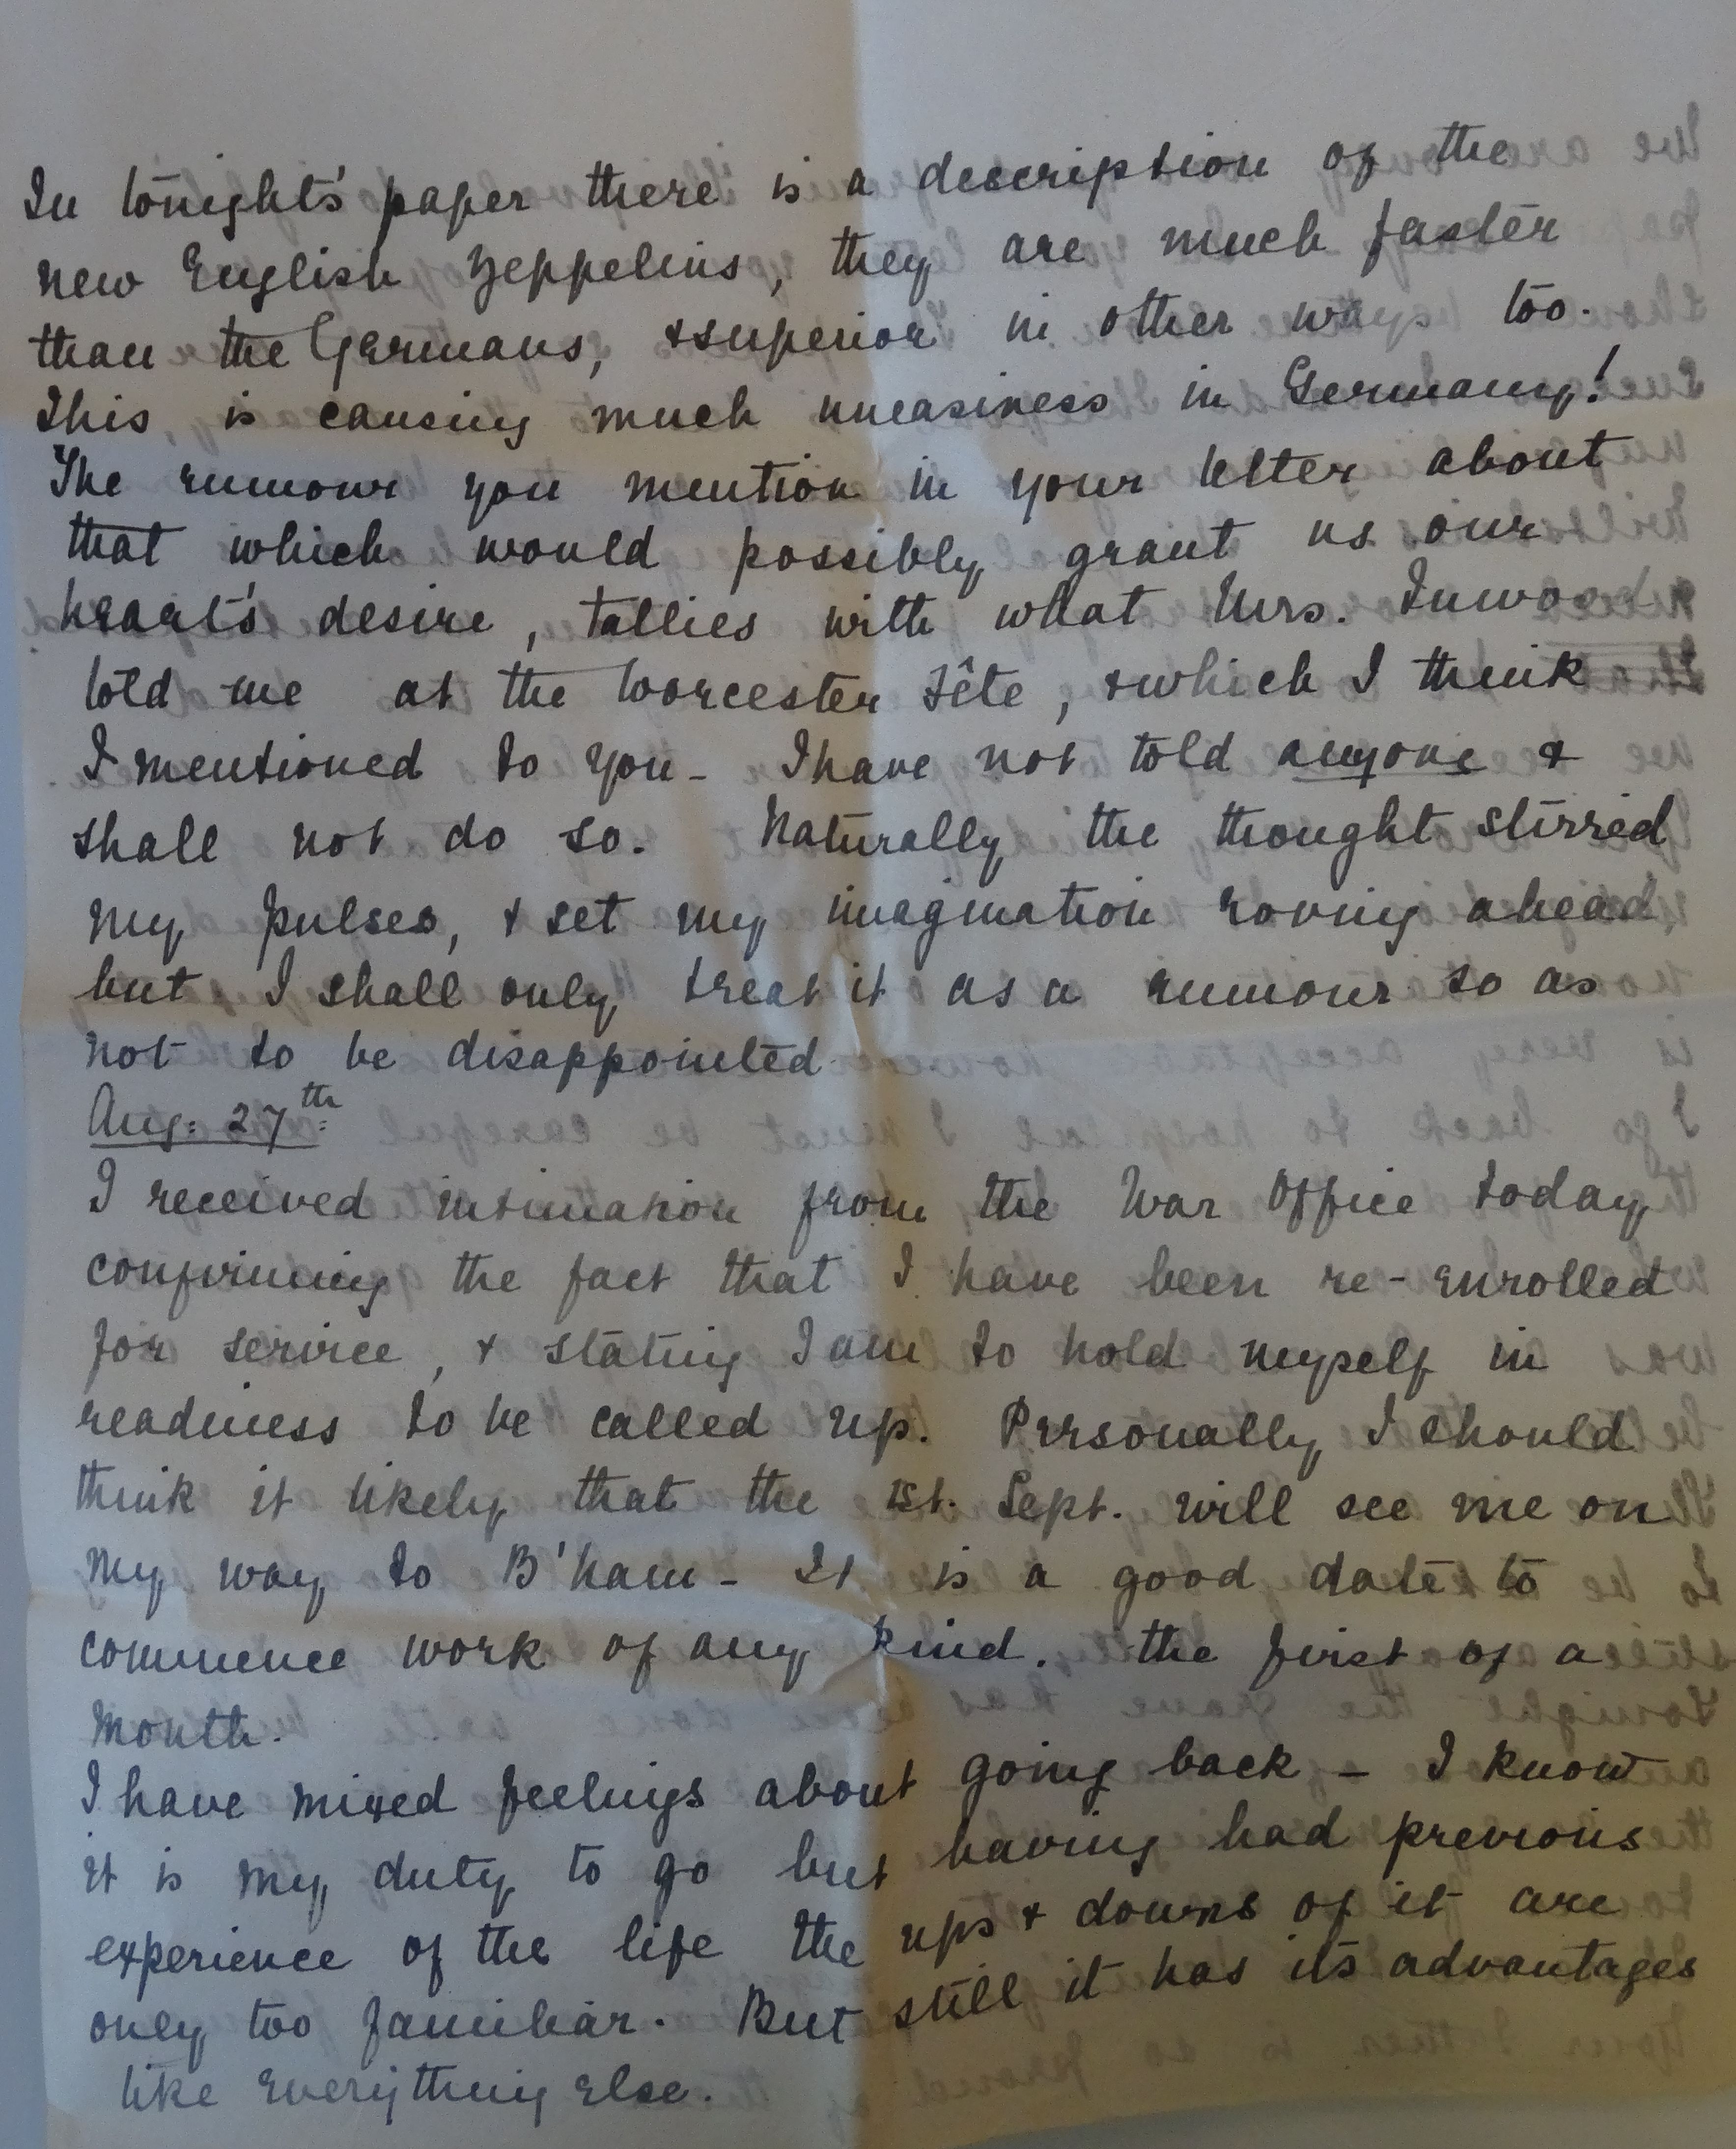 In tonight's paper there is a description of the
new English Zeppelins, they are much faster
than the Germans, & superior in other ways too.
This is causing much uneasiness in Germany!
The rumour you mention in your letter about
that which would possibly grant us our
heart's desire, tallies with what Mrs. Inwood
told me at the Worcester Fête, & which I think
I mentioned to you - I have not told anyone &
shall not do so. Naturally the thought stirred
my pulses, & set my imagination roving ahead
but I shall only treat it as a rumour so as
not to be disappointed
Aug: 27th
I received intimation from the War Office today
confirming the fact that I have been re-enrolled
for service, & stating I am to hold myself in
readiness to be called up. Personally I should
think it likely that the 1st. Sept. will see me on
my way to B'ham - It is a good date to
commence work of any kind. the first of a
month.
I have mixed feelings about going back - I know
it is my duty to go but having had previous
experience of the life the ups & downs of it are
only too familiar. But still it has its advantages
like everything else.